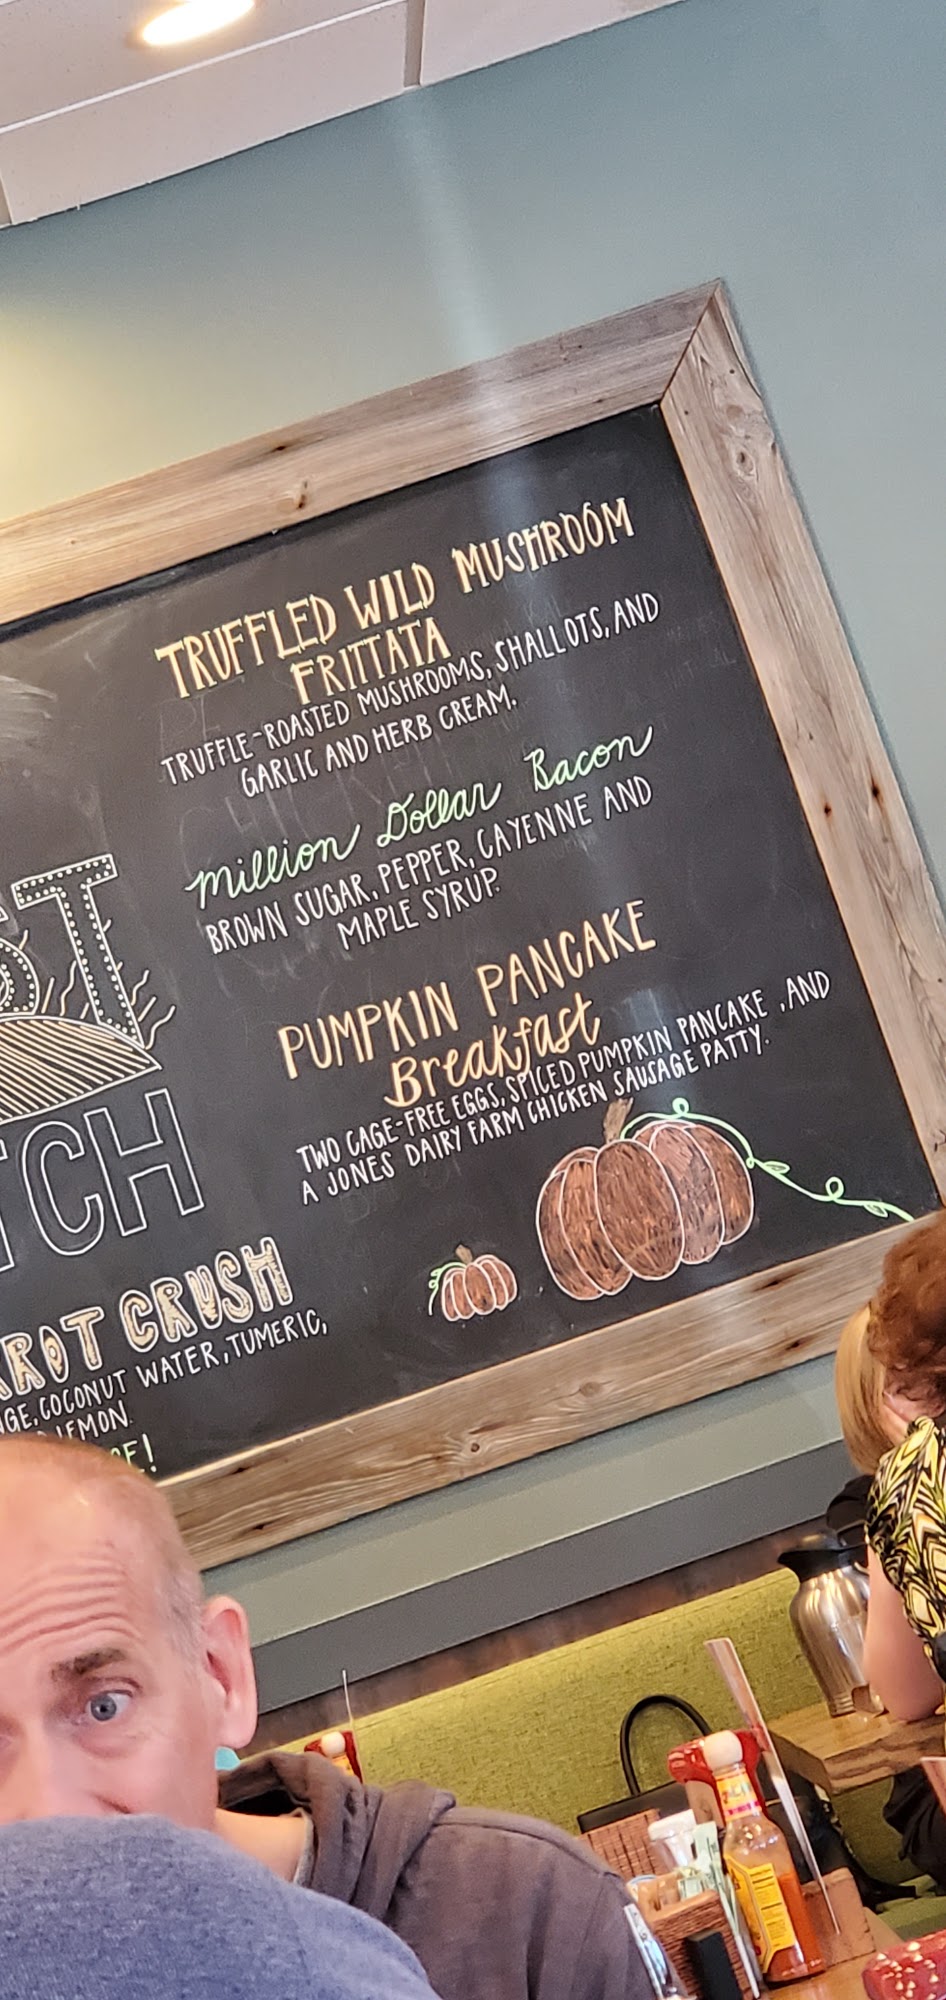 TRUFFLED WILD MUSHROOM
FRITTATA
TRUFFLE-ROASTED MUSHROOMS, SHALLOTS, AND
GARLIC AND HERB CREAM.
Million Dollar Bacon
BROWN SUGAR, PEPPER, CAYENNE AND
MAPLE SYRUP.
PUMPKIN PANCAKE
Breakfast
TWO CAGE-FREE EGGS, SPICED PUMPKIN PANCAKE , AND
A JONES DAIRY FARM CHICKEN SAUSAGE PATTY.
ST
TCH
RROT CRUSH
NGE, COCONUT WATER, TUMERIC,
LEMON.
E!